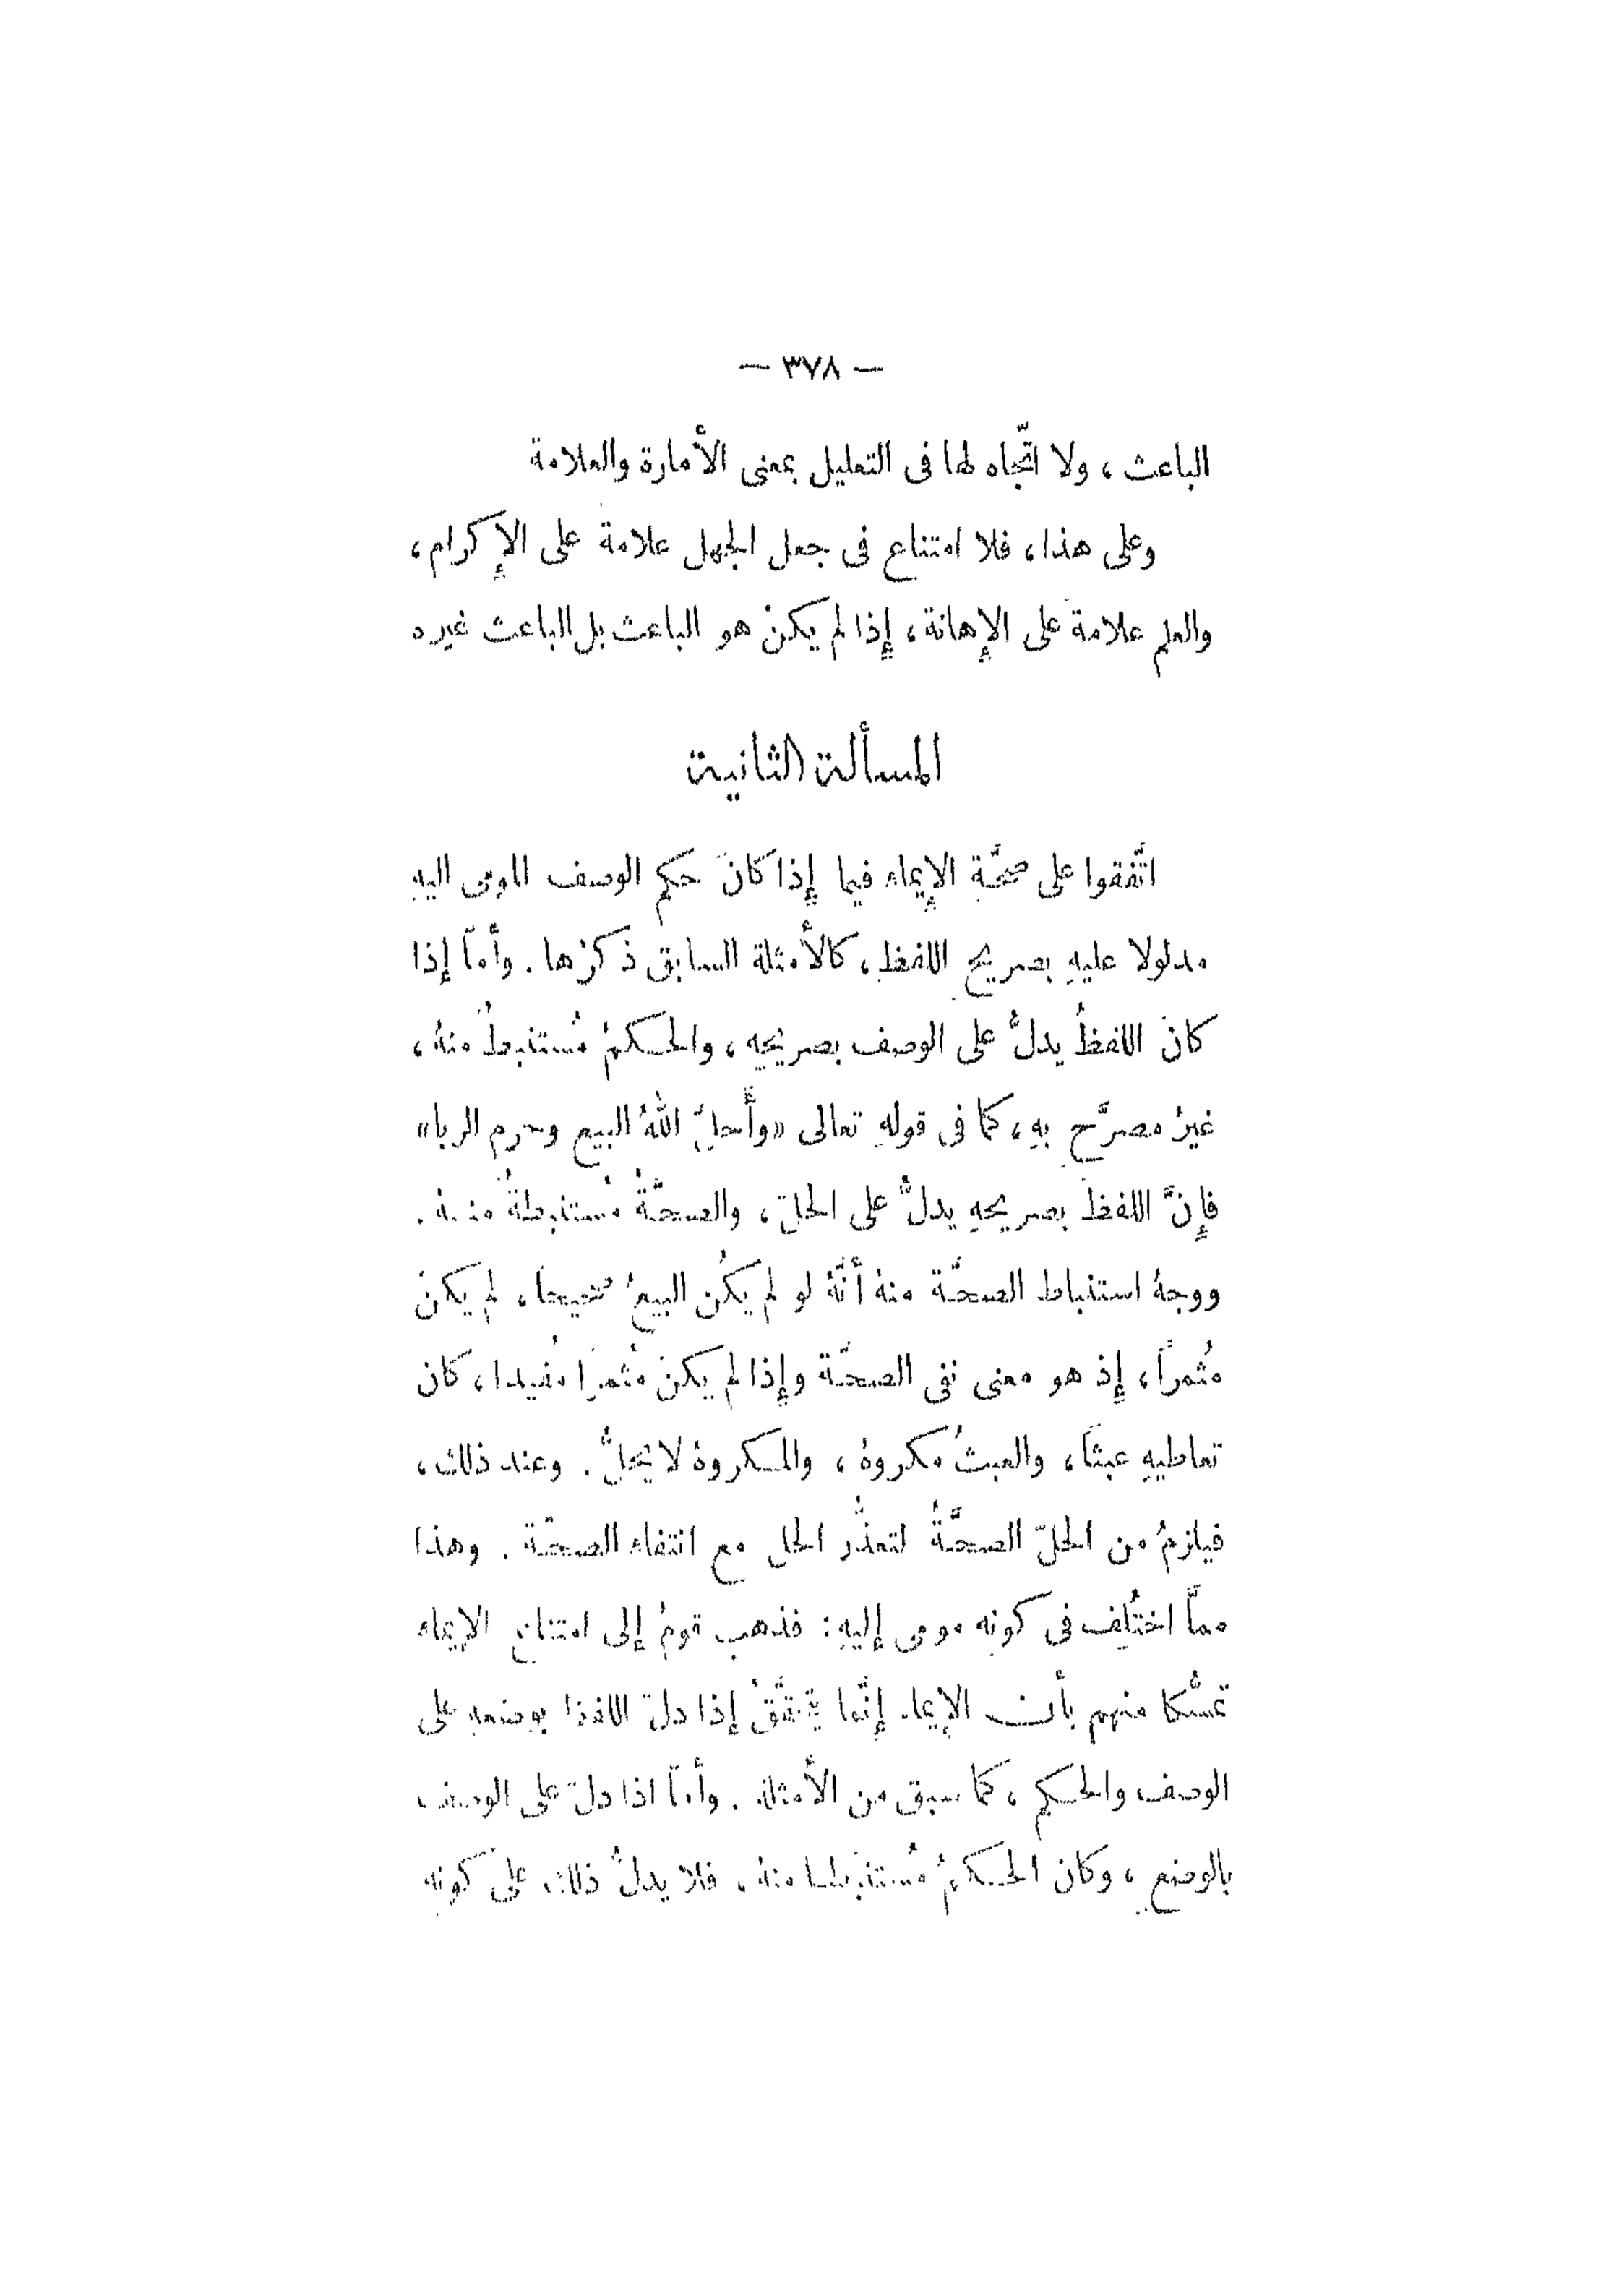 — ٣٧٨ —
الباعث ، ولا اتّجاه لها فى التعليل بمعنى الأمارة والعلامة
وعلى هذا ، فلا امتناع فى جعل الجهل علامةً على الإكرام ،
والعلم علامة على الإهانة ، إذا لم يكنْ هو الباعث بل الباعث غيره
المسألة الثانية
اتّفقوا على صحَّة الإيماء فيما إذا كانَ حكم الوصف المومى اليهِ
مدلولا عليهِ بصريح اللفظِ ، كالأمثلة السابق ذكرُها . وأمّا إذا
كانَ اللفظُ يدلُّ على الوصف بصريحِهِ ، والحكمُ مُستنبطٌ منهُ ،
غيرُ مصرَّح بهِ ، كما فى قولهِ تعالى «وأَحلَّ اللهُ البيع وحرم الربا»
فإِنَّ اللفظَ بصريحهِ يدلُّ على الحلّ ، والصحَّةُ مُستنبطةٌ منهُ .
ووجهُ استنباط الصحَّة منهُ أنَّهُ لو لم يكُن البيعُ صحيحاً ، لم يكنْ
مُثمراً ، إِذ هو معنى نفى الصحَّة وإذا لم يكنْ مُثمراً مُفيدا ، كان
تعاطيهِ عبثاً ، والعبثُ مكروهٌ ، والمكروهُ لا يحلُّ . وعند ذلك ،
فيلزمُ من الحلّ الصحَّةُ لتعذُّر الحل مع انتفاء الصحّة . وهذا
ممَّا اختُلِف فى كونه مومى إليهِ : فذهب قومٌ إلى امتناع الإيماء
تمسُّكا منهم بأن الإيماء إنَّما يتحقَّقُ إذا دلّ اللفظ بوضعهِ على
الوصف والحكم ، كما سبق من الأمثلة . وأمّا اذا دلّ على الوصف
بالوضع ، وكان الحكمُ مُستنبطا منهُ ، فلا يدلُّ ذلك على كونهِ